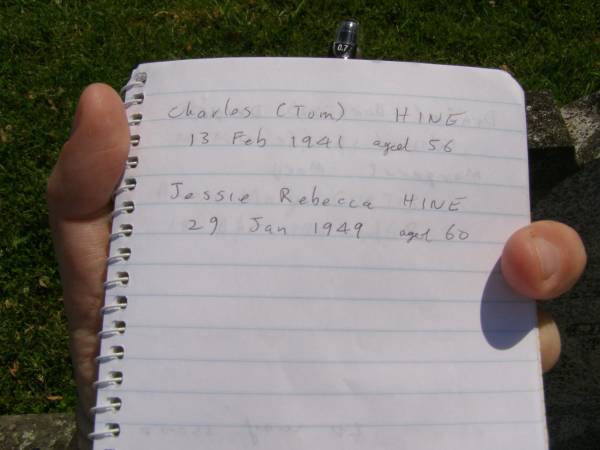 0.7
Charles (Tom) HINE
13 Feb 1941 aged 56
Jessie Rebecca HINE
29 Jan 1949 aged 60